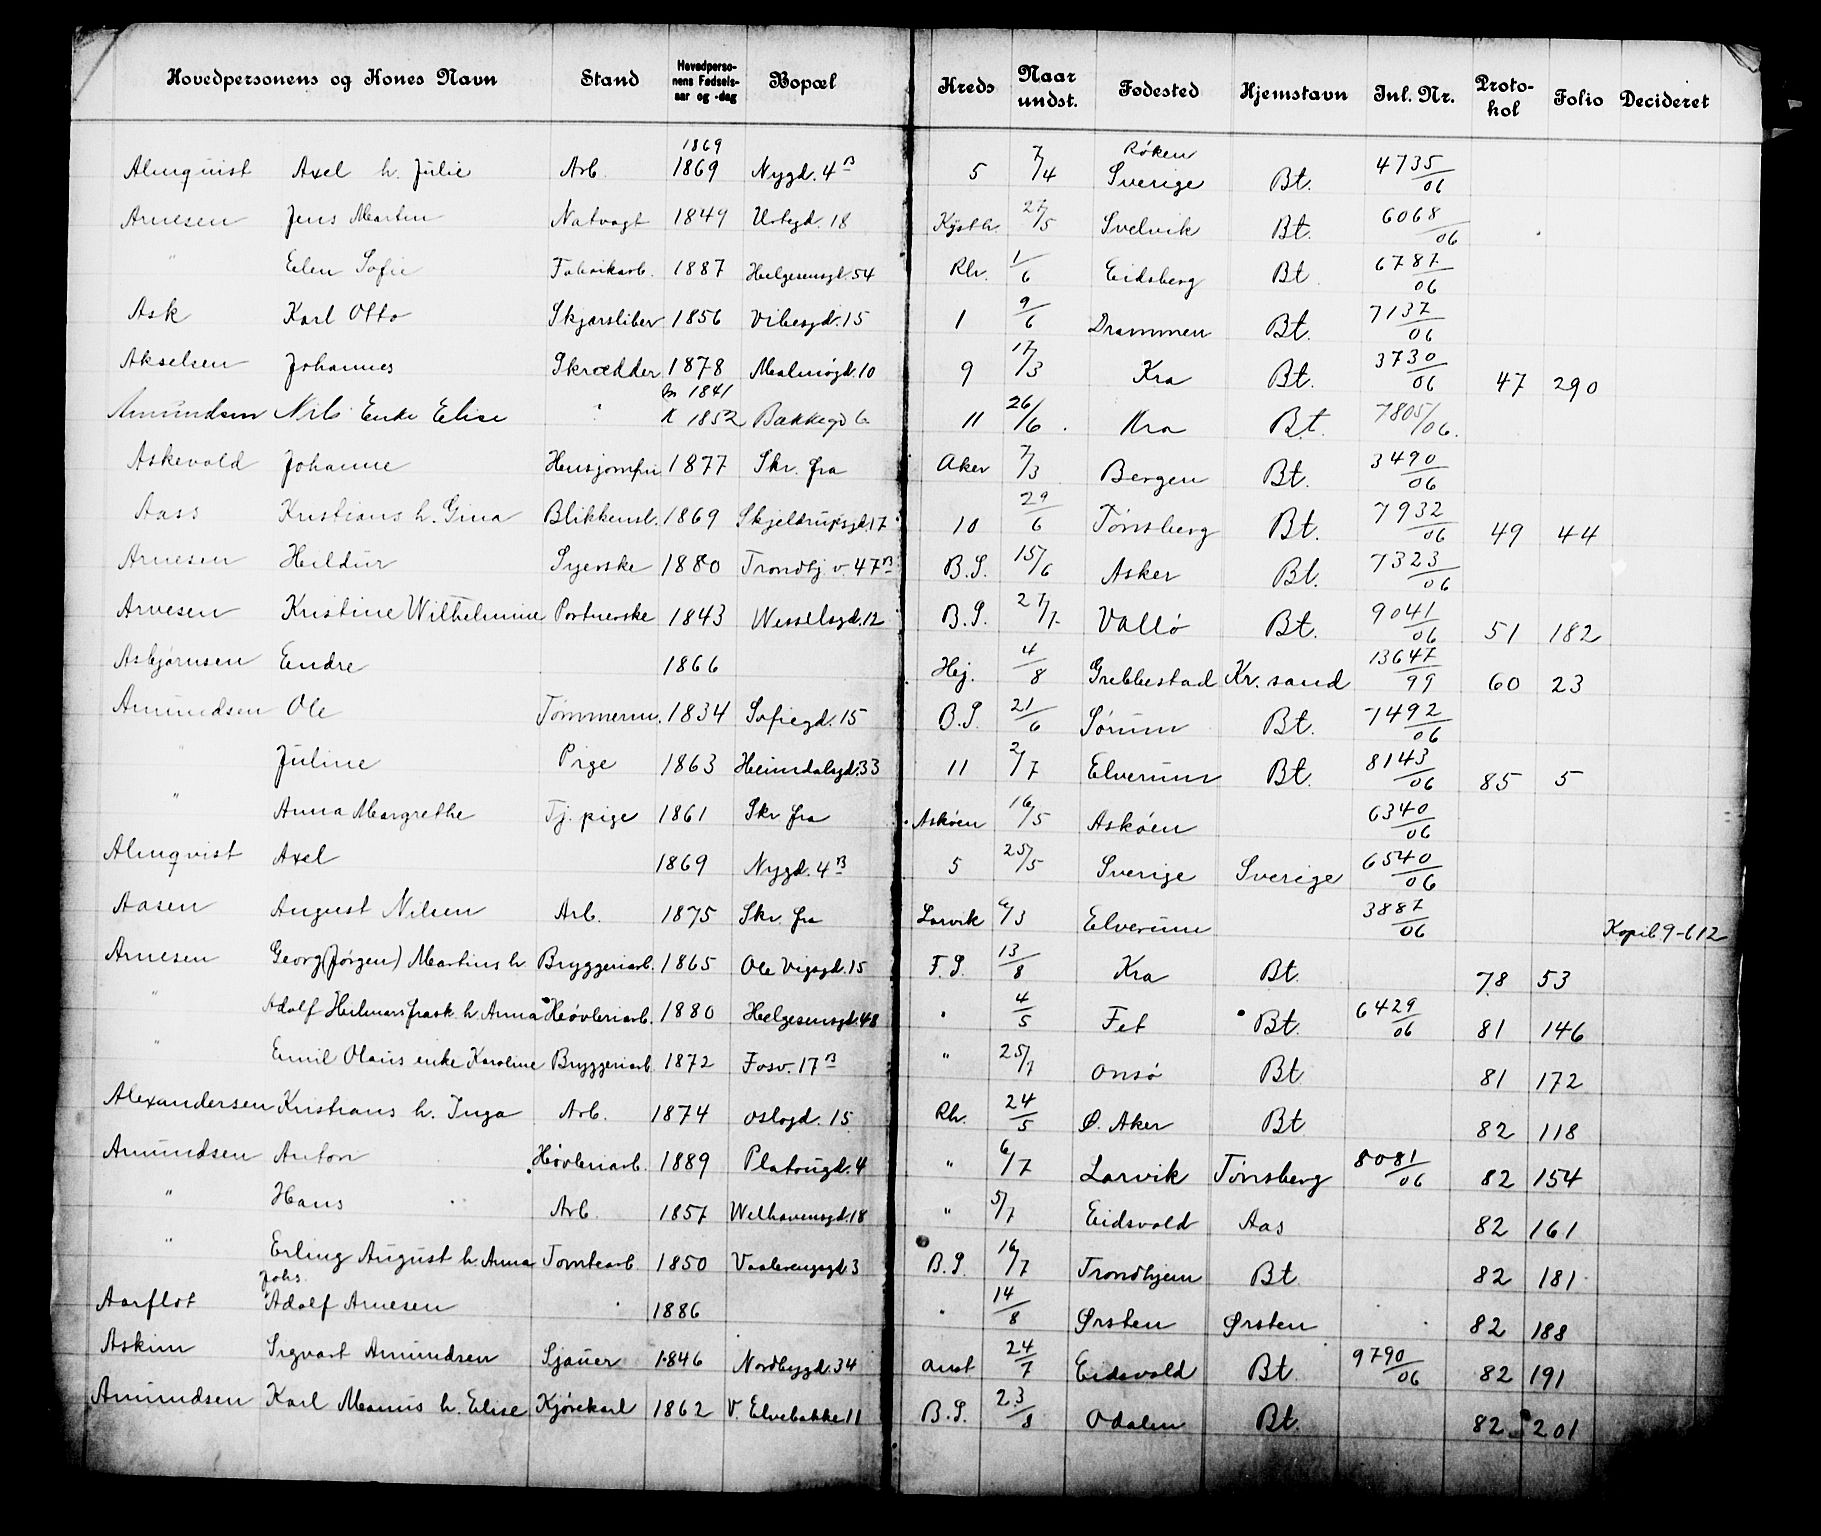 Hovedpersonens og Kones Navn Stand Hovedpersonens Fødselsaar og -dag Bopæl Kreds Naar undst. Fødested Hjemstavn Inl. Nr. Protokol Folio Decideret
1869 Røken
Almquist Axel h. Julie Arb. 1869 Nygd. 4B 5 7/4 Sverige Bt. 4735/06
Arnesen Jens Martin Natvagt 1849 Urtegd. 18 Kysth. 27/5 Svelvik Bt. 6068/06
" Elen Sofie Fabrikarb. 1887 Helgesensgt. 54 Rh. 1/6 Eidsberg Bt 6787/06
Ask Karl Otto Skjærsliber 1856 Vibesgd. 15 1 9/6 Drammen Bt. 7137/06
Akselsen Johannes Skrædder 1878 Malmøgd. 10 9 17/3 Kra Bt. 3730/06 47 290
M 1841
Amundsen Nils Enke Elise " K 1852 Bakkegd 6 11 26/6 Kra Bt. 7805/06.
Askevold Johanne Husjomfru 1877 Skr. fra Aker 7/3 Bergen Bt. 3490/06
Aass Kristians h. Gina Blikkensl. 1869 Skjeldrupsgd. 17 10 29/6 Tønsberg Bt. 7932/06 49 44
Arnesen Hildur Syerske 1880 Trondhj v. 47B B.S. 15/6 Asker Bt. 7323/06
Arnesen Kristine Wilhelmine Portnerske 1843 Wesselsgd. 12 B.S. 27/7. Vallø Bt. 9041/06 51 182
Asbjørnsen Endre 1866 Hej. 4/8 Grebbestad Kr. sand 13647/99 60 23
Amundsen Ole Tømmerm. 1834 Sofiegd. 15 B.S. 21/6 Sørum Bt. 7492/06
" Juline Pige 1863 Heimdalsgd. 33 11 2/7 Elverum Bt. 8143/06 85 5
" Anna Margrethe Tj. pige 1861 Skr fra Askøen 16/5 Askøen 6340/06
Almqvist Axel 1869 Nygd. 4B 5 25/5 Sverige Sverige 6540/06
Aasen August Nilsen Arb. 1875 Skr. fra Larvik 6/3 Elverum 3887/06 Kopib 9-612
Arnesen Georg (Jørgen) Martins h Bryggeriarb. 1865 Ole Vigsgd. 15 F.S. 13/8 Kra Bt. 78 53
" Adolf Hilmars frask. h Anna Høvleriarb. 1880 Helgesensgd. 48 " 4/5 Fet Bt. 6429/06 81 146
" Emil Olaus enke Karoline Bryggeriarb 1872 Fosv. 17B " 25/7 Onsø Bt 81 172
Alexandersen Kristians h. Inga Arb. 1874 Oslogd. 15 Rh. 24/5 Ø. Aker Bt 82 118
Amundsen Anton Høvleriarb. 1889 Platougd. 4 " 6/7 Larvik Tønsberg 8081/06 82 154
" Hans Arb. 1857 Welhavensgd. 18 " 5/7 Eidsvold Aas 82 161
" Erling August h. Anna Tomtearb 1850 Vaalerengsgd. 3 B.S. 16/7 Trondhjem Bt 82 181
Johs.
Aarflot Adolf Arnesen 1886 " 14/8 Ørsten Ørsten 82 188
Askim Sigvart Amundsen Sjauer 1846 Nordbygd. 34 Anst 24/7 Eidsvold Bt. 9790/06 82 191
Amundsen Karl Manus h. Elise Kjørekarl 1862 V. Elvebakke 11 B.S. 23/8 Odalen Bt. 82 201